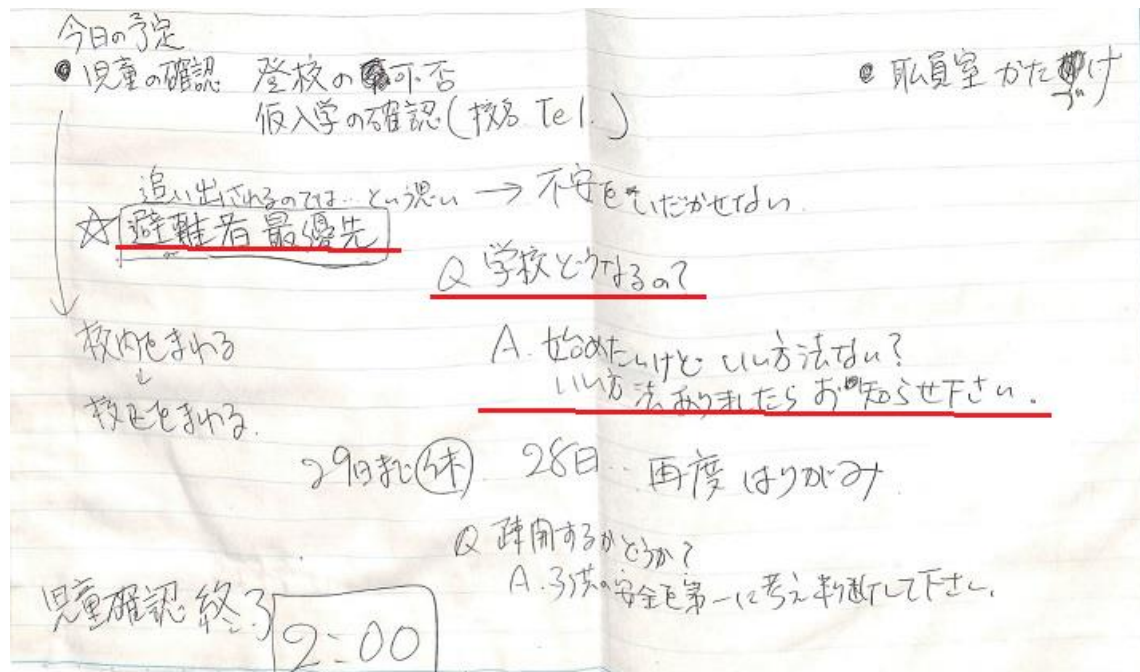 今日の予定
● 児童の確認 登校の可否
仮入学の確認(校名 Tel.)
● 職員室 かたづけ
追い出されるのでは…という思い → 不安をいだかせない
☆避難者最優先
Q 学校どうなるの?
校内をまわる
↓
校区をまわる.
A. 始めたいけど いい方法ない?
いい方法ありましたらお知らせ下さい.
29日まで休 28日… 再度 はりがみ
Q 疎開するかどうか?
A. 子供の安全を第一に考え判断して下さい.
児童確認 終了 2:00